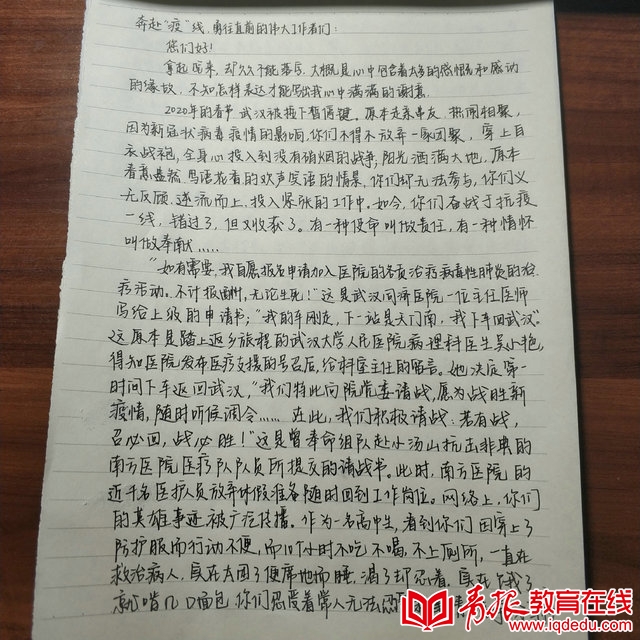 奔赴“疫”线,勇往直前的伟大工作者们:
您们好!
拿起笔来,却久久不能落笔。大概是心中包含着太多的感慨和感动
的缘故,不知怎样表达才能写出我心中满满的谢意。
2020年的春节,武汉被按下暂停键。原本走亲串友,热闹相聚,
因为新冠状病毒疫情的影响,你们不得不放弃一家团聚,穿上白
衣战袍,全身心投入到没有硝烟的战争,阳光洒满大地,原本
春意盎然,鸟语花香的欢声笑语的情景,你们却无法参与,你们义
无反顾,逆流而上,投入紧张的工作中。如今,你们奋战于抗疫
一线,错过了,但又收获了。有一种使命叫做责任,有一种情怀
叫做奉献……
“如有需要,我自愿报名申请加入医院的各项治疗病毒性肺炎的治
疗活动。不计报酬,无论生死!”这是武汉同济医院一位主任医师
写给上级的申请书;“我的车刚友,下一站是天门南,我下车回武汉”。
这原本是踏上返乡旅程的武汉大学人民医院病理科医生吴小艳,
得知医院发布医疗支援的号召后,给科室主任的留言。她决定第一
时间下车返回武汉,“我们特此向院党委请战,愿为战胜新
疫情,随时听候调令……在此,我们积极请战:若有战,
召必回,战必胜!”这是曾奉命组队赴小汤山抗击非典的
南方医院医疗队队员所提交的请战书。此时,南方医院的
近千名医护人员放弃休假准备随时回到工作岗位。网络上,你们
的英雄事迹被广泛传播。作为一名高中生,看到你们因穿上了
防护服而行动不便,而10个小时不吃不喝,不上厕所,一直在
救治病人,实在太困了便席地而睡,渴了却忍着,实在饿了
就啃几口面包,你们忍受着常人无法忍
青报教育在线
www.iqdedu.com